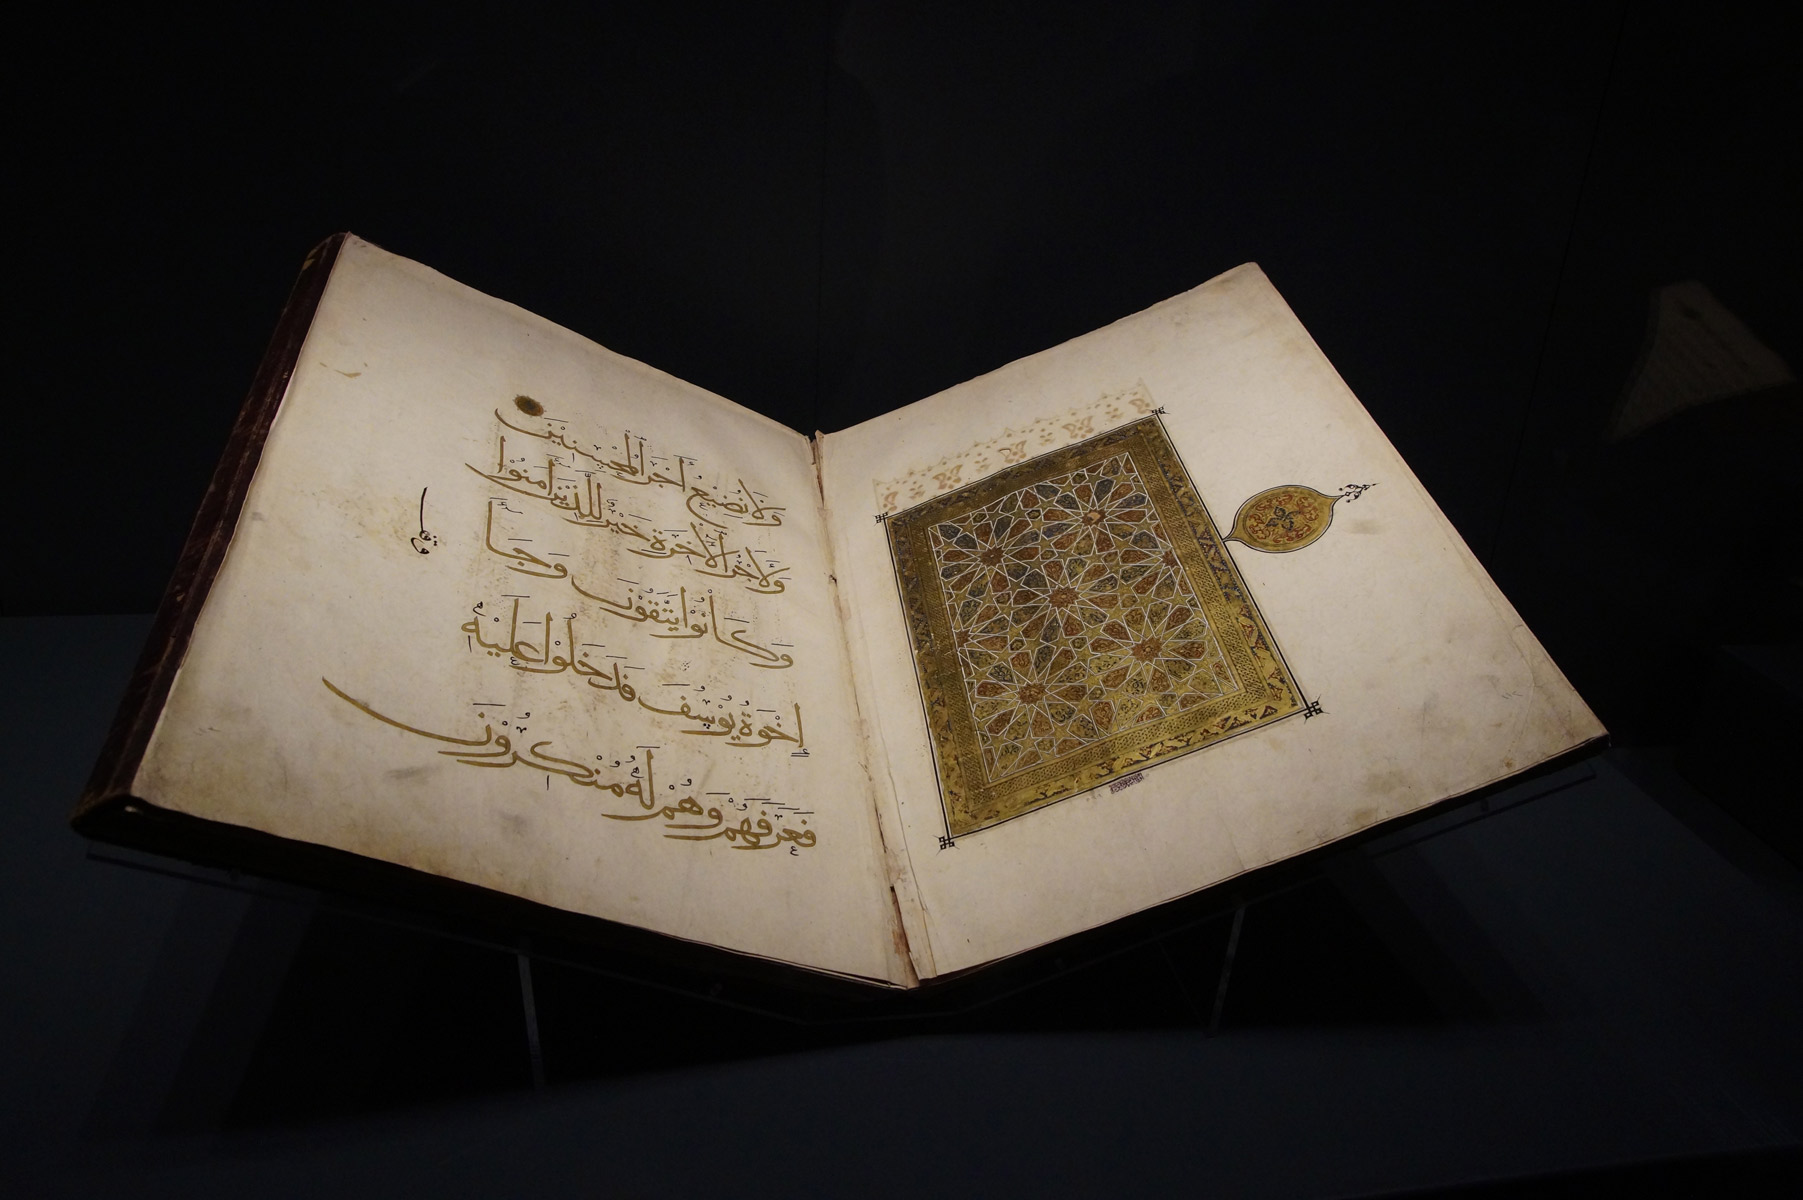 وَلَا نُضِيْعُ أَجْرَ الْمُحْسِنِيْنَ
وَلَأَجْرُ الْآخِرَةِ خَيْرٌ لِلَّذِيْنَ أٰمَنُوْا
وَكَانُوْا يَتَّقُوْنَ وَجَآءَ
إِخْوَةُ يُوْسُفَ فَدَخَلُوْا عَلَيْهِ
فَعَرَفَهُمْ وَهُمْ لَهُ مُنْكِرُوْنَ
وقف